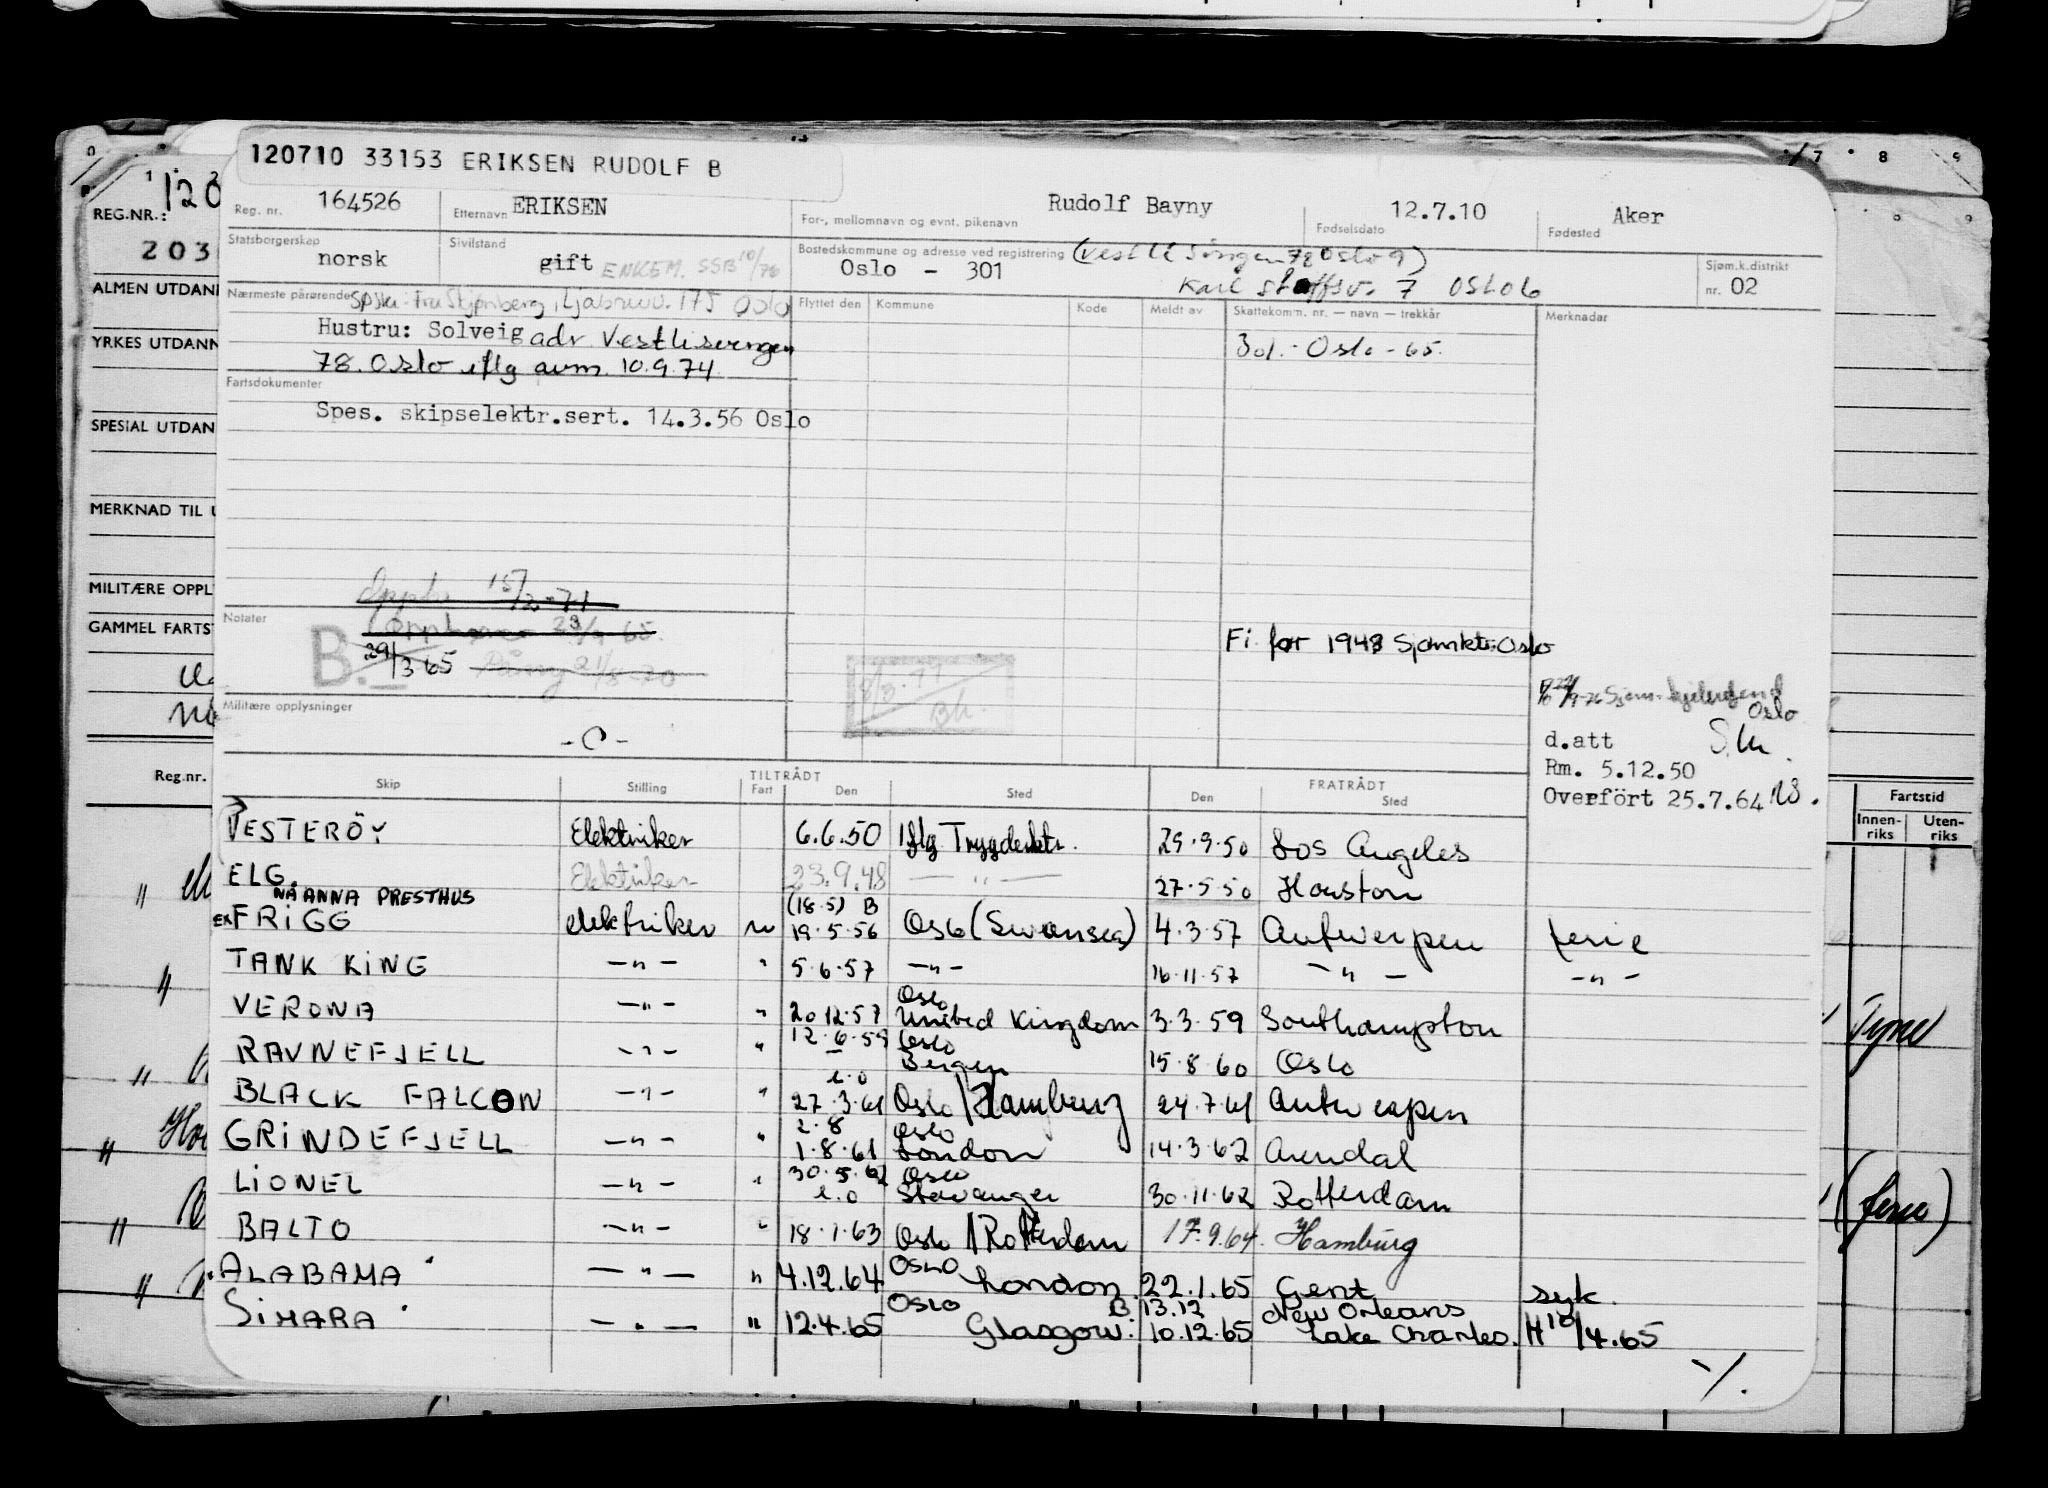 120710 33153 ERIKSEN RUDOLF B
Reg. nr. 164526 Etternavn ERIKSEN For-, mellomnavn og evnt. pikenavn Rudolf Bayny Fødselsdato 12.7.10 Fødested Aker
Statsborgerskap norsk Sivilstand gift ENKEM. SSB 10/76 Bostedskommune og adresse ved registrering Oslo - 301 Oslo 9)
7 OSLO 6 Sjøm.k.distrikt nr. 02
Nærmeste pårørende 175 Oslo Flyttet den Kommune Kode Meldt av Skattekomm. nr. — navn — trekkår Merknader
Hustru: Solveig adr. Vestlisvingen 301 - Oslo - 65.
78. Oslo iflg avm. 10.9.74
Fartsdokumenter
Spes. skipselektr.sert. 14.3.56 Oslo
15/2-71
Notater 65.
B. 29/3 65 21/8-70
Fi. før 1948 Sjømktr. Oslo
Oslo
Militære opplysninger
- O -
d.att
Rm. 5.12.50
Overfört 25.7.64
Skip Stilling TILTRÅDT Fart Den Sted FRATRÅDT Den Sted
VESTERÖY Elektriker 6.6.50 Iflg Trygdektr. 29.9.50 Los Angeles
ELG Elektriker 23.9.48 — " — 27.5.50 Houston
NÅ ANNA PRESTHUS (18.5) B
ex FRIGG elektriker 19.5.56 Oslo (Swansea) 4.3.57 Antwerpen ferie
TANK KING — " — " 5.6.57 — " — 16.11.57 — " — — " —
Oslo
VERONA — " — " 20.12.57 United Kingdom 3.3.59 Southampton
12.6.59 Oslo
RAVNEFJELL — " — " Bergen 15.8.60 Oslo
BLACK FALCON — " — " 27.3.61 Oslo / Hamburg 24.7.61 Antwerpen
2.8 Oslo
GRINDEFJELL — " — " 1.8.61 London 14.3.62 Arendal
30.5.62 Oslo
LIONEL — " — " Stavanger 30.11.62 Rotterdam
BALTO — " — " 18.1.63 Oslo / Rotterdam 17.9.64 Hamburg
ALABAMA — " — " 4.12.64 Oslo London 22.1.65 Gent syk.
Oslo B 13.12 New Orleans
SIMARA — " — " 12.4.65 Glasgow: 10.12.65 Lake Charles. H 10/4.65
·/.
REG.NR.: 120
203
ALMEN UTDAN
YRKES UTDANN
SPESIAL UTDAN
MERKNAD TIL U
MILITÆRE OPPL
GAMMEL FARTS
Reg.nr.
7 8 9
Fartstid
Innen-riks Uten-riks
Tyne
(ferie)